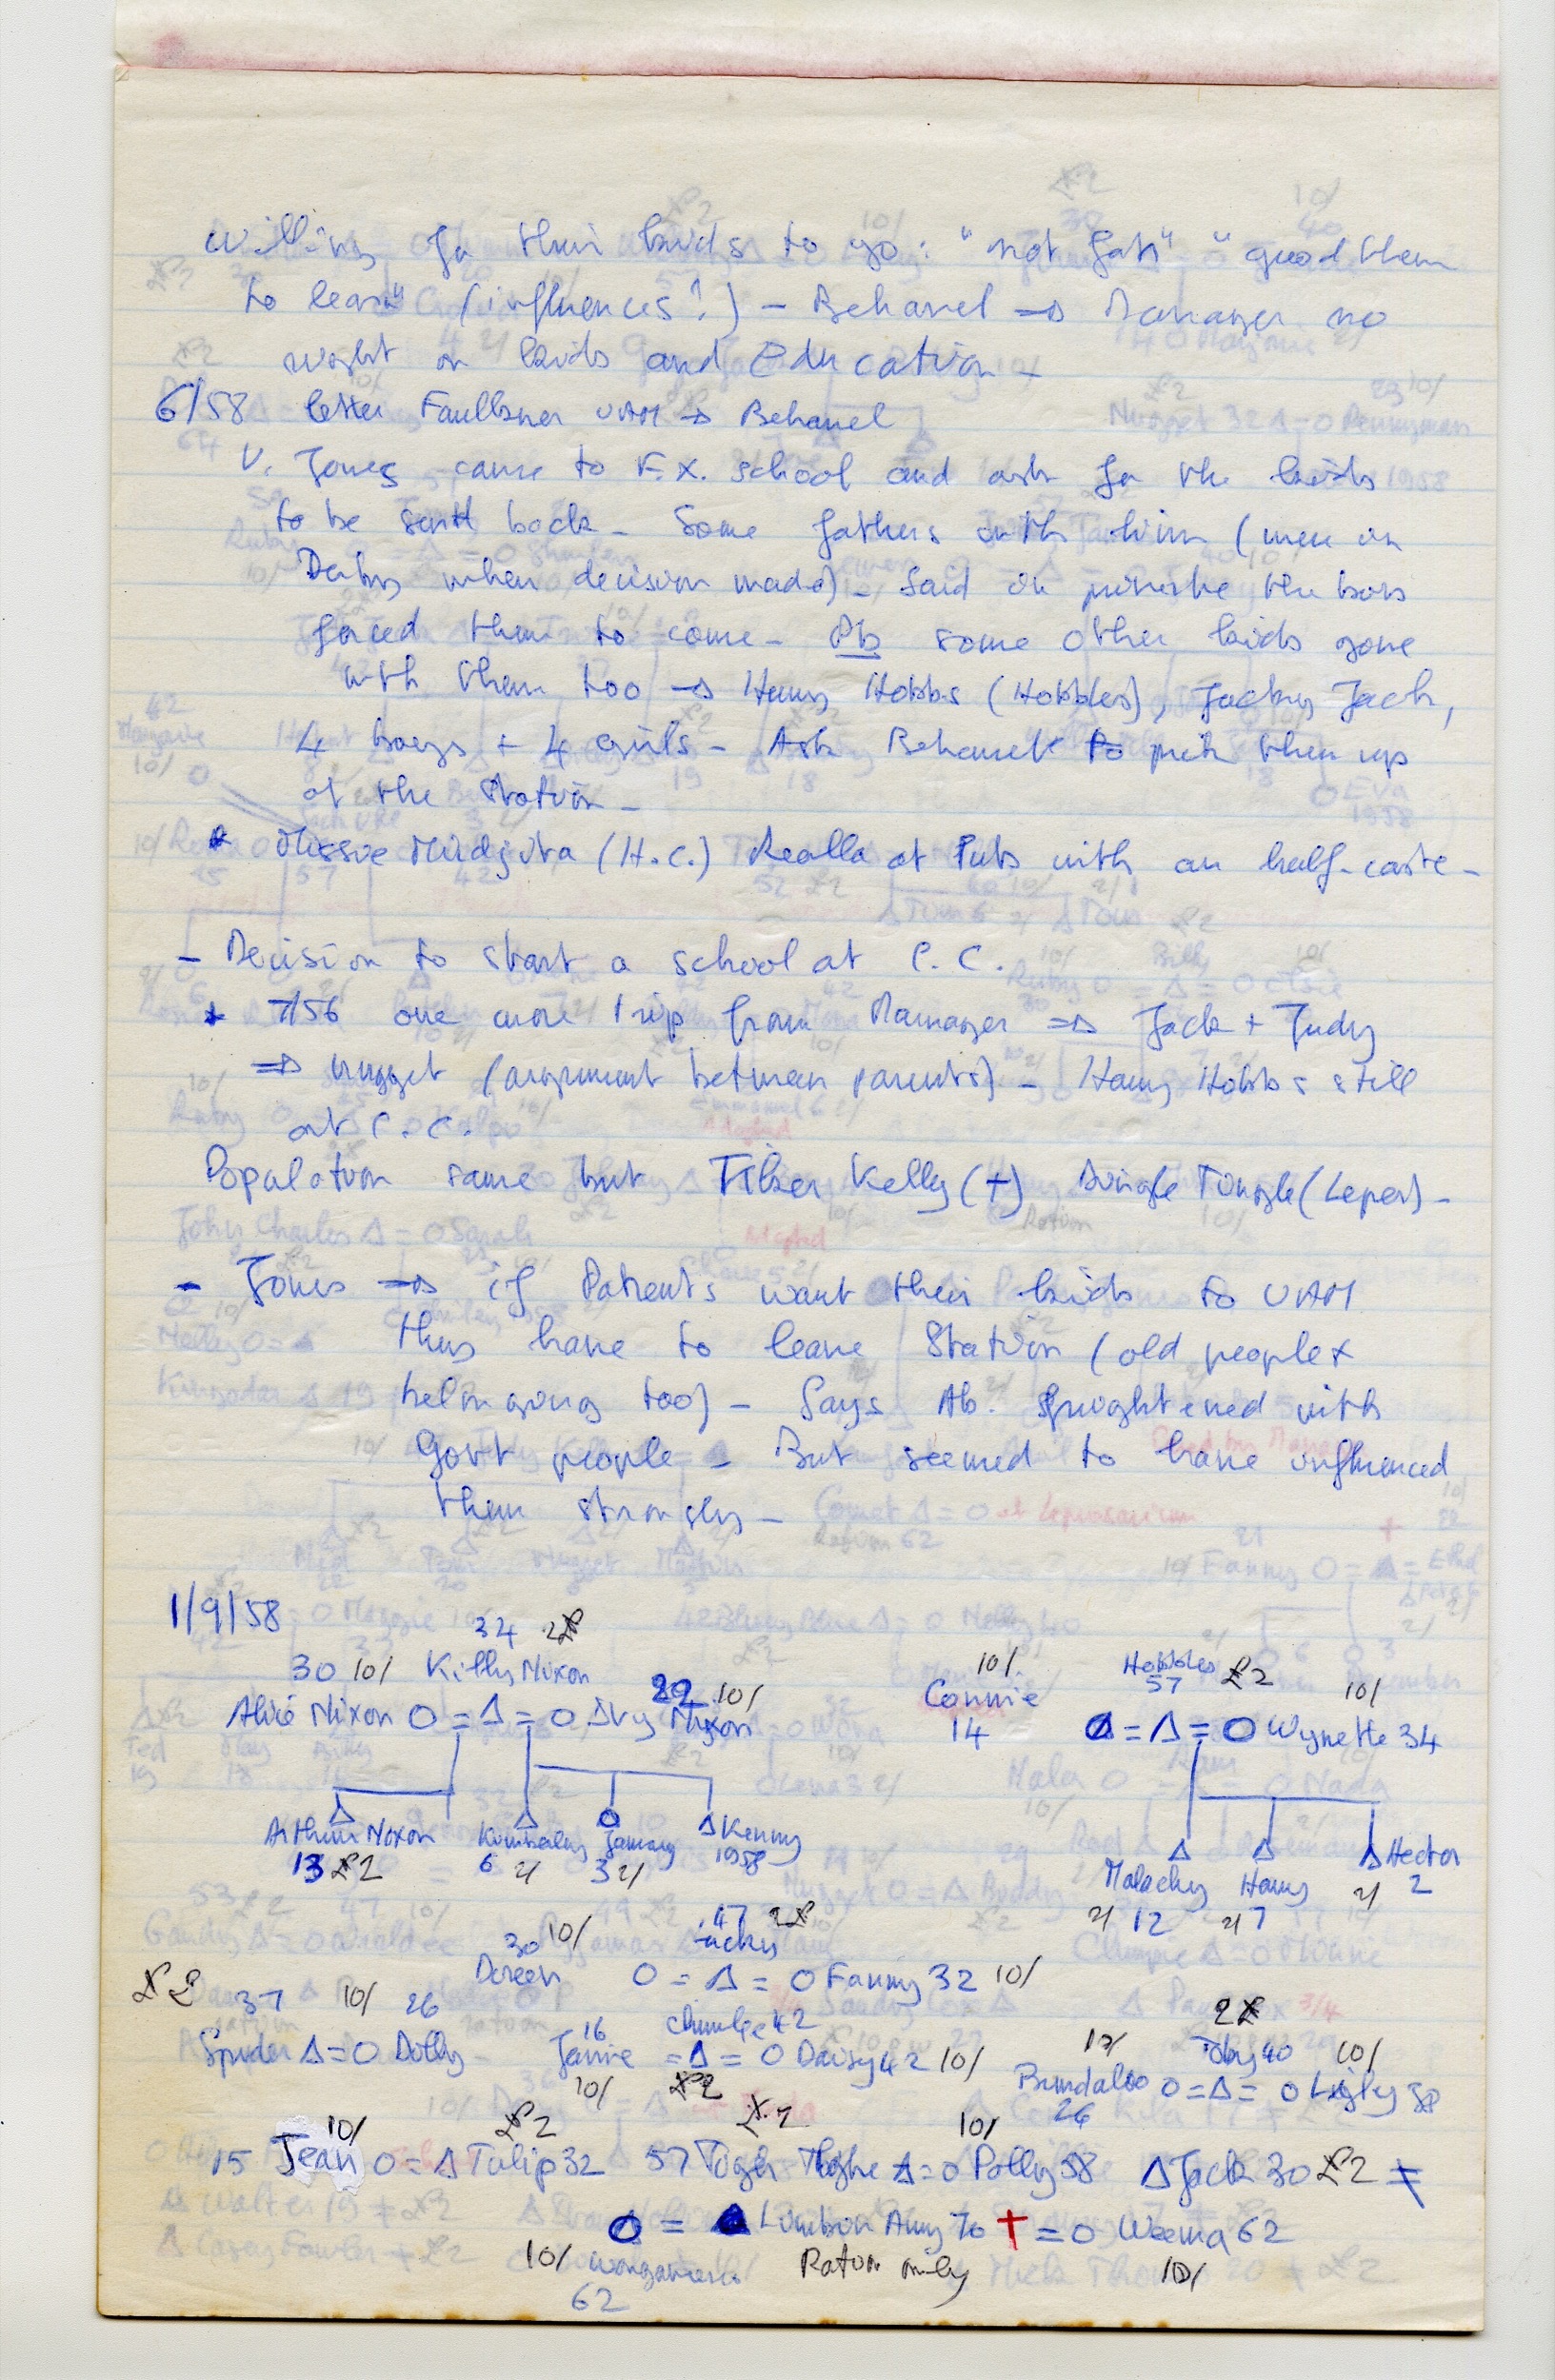 willing for their kids to go: "not far" "good them
to learn" (influences?) - Behanel → Manager no
right on kids and Education -
6/58 letter Faulkner UAM → Behanel
V. Jones came to F.X. school and ask for the kids
to be sent back - Some fathers with him (were in
Derby when decision made) - Said in private the boss
forced them to come - Pb some other kids gone
with them too → Harry Hobbs (Hobbles), Jacky Jack,
4 boys + 4 girls - Ask Behanel to pick them up
at the station -
* Missie Midjita (H.C.) Realla at Puts with an half-caste -
- Decision to start a school at C.C.
+ 7/56 one more trip from Manager ⇒ Jack + Judy
⇒ nugget (argument between parents) - Harry Hobbs still
at C.C.
Population same but Kelly (+) Tungle (Leper) -
- Jones → if Parents want their kids to UAM
they have to leave Station (old people +
belonging too) - Says Ab. frightened with
Govt people - But seemed to have influenced
them strongly -
1/9/58
34 2£
30 10/ Kitty Nixon 22 10/ 10/ Hobbles 57 £2 10/
Alice Nixon O = Δ = O Ivy Nixon Connie 14 O = Δ = O Wynette 34
Δ Δ O Δ Kenny Δ Δ Δ Hector
Arthur Nixon Kimberley January 1958 Malachy Harry 2/ 2
13 £2 6 2/ 3 2/ 2/ 12 2/ 7
30 10/ 47 2£
Doreen Jacky O = Δ = O Fanny 32 10/
£2 37 10/ 26 16 Chumlee 42 2£
Spider Δ = O Dolly Jannie = Δ = O Daisy 42 10/ Toby 40 10/
10/ £2 Bundaloo O = Δ = O Ligly 38
26
10/ £2 £2 10/
15 Jean O = Δ Tulip 32 57 Tighe Δ = O Polly 58 Δ Jack 30 £2 ≠
O = Δ Limbon Amy 70 + = O Weema 62
10/ Ration only 10/
62